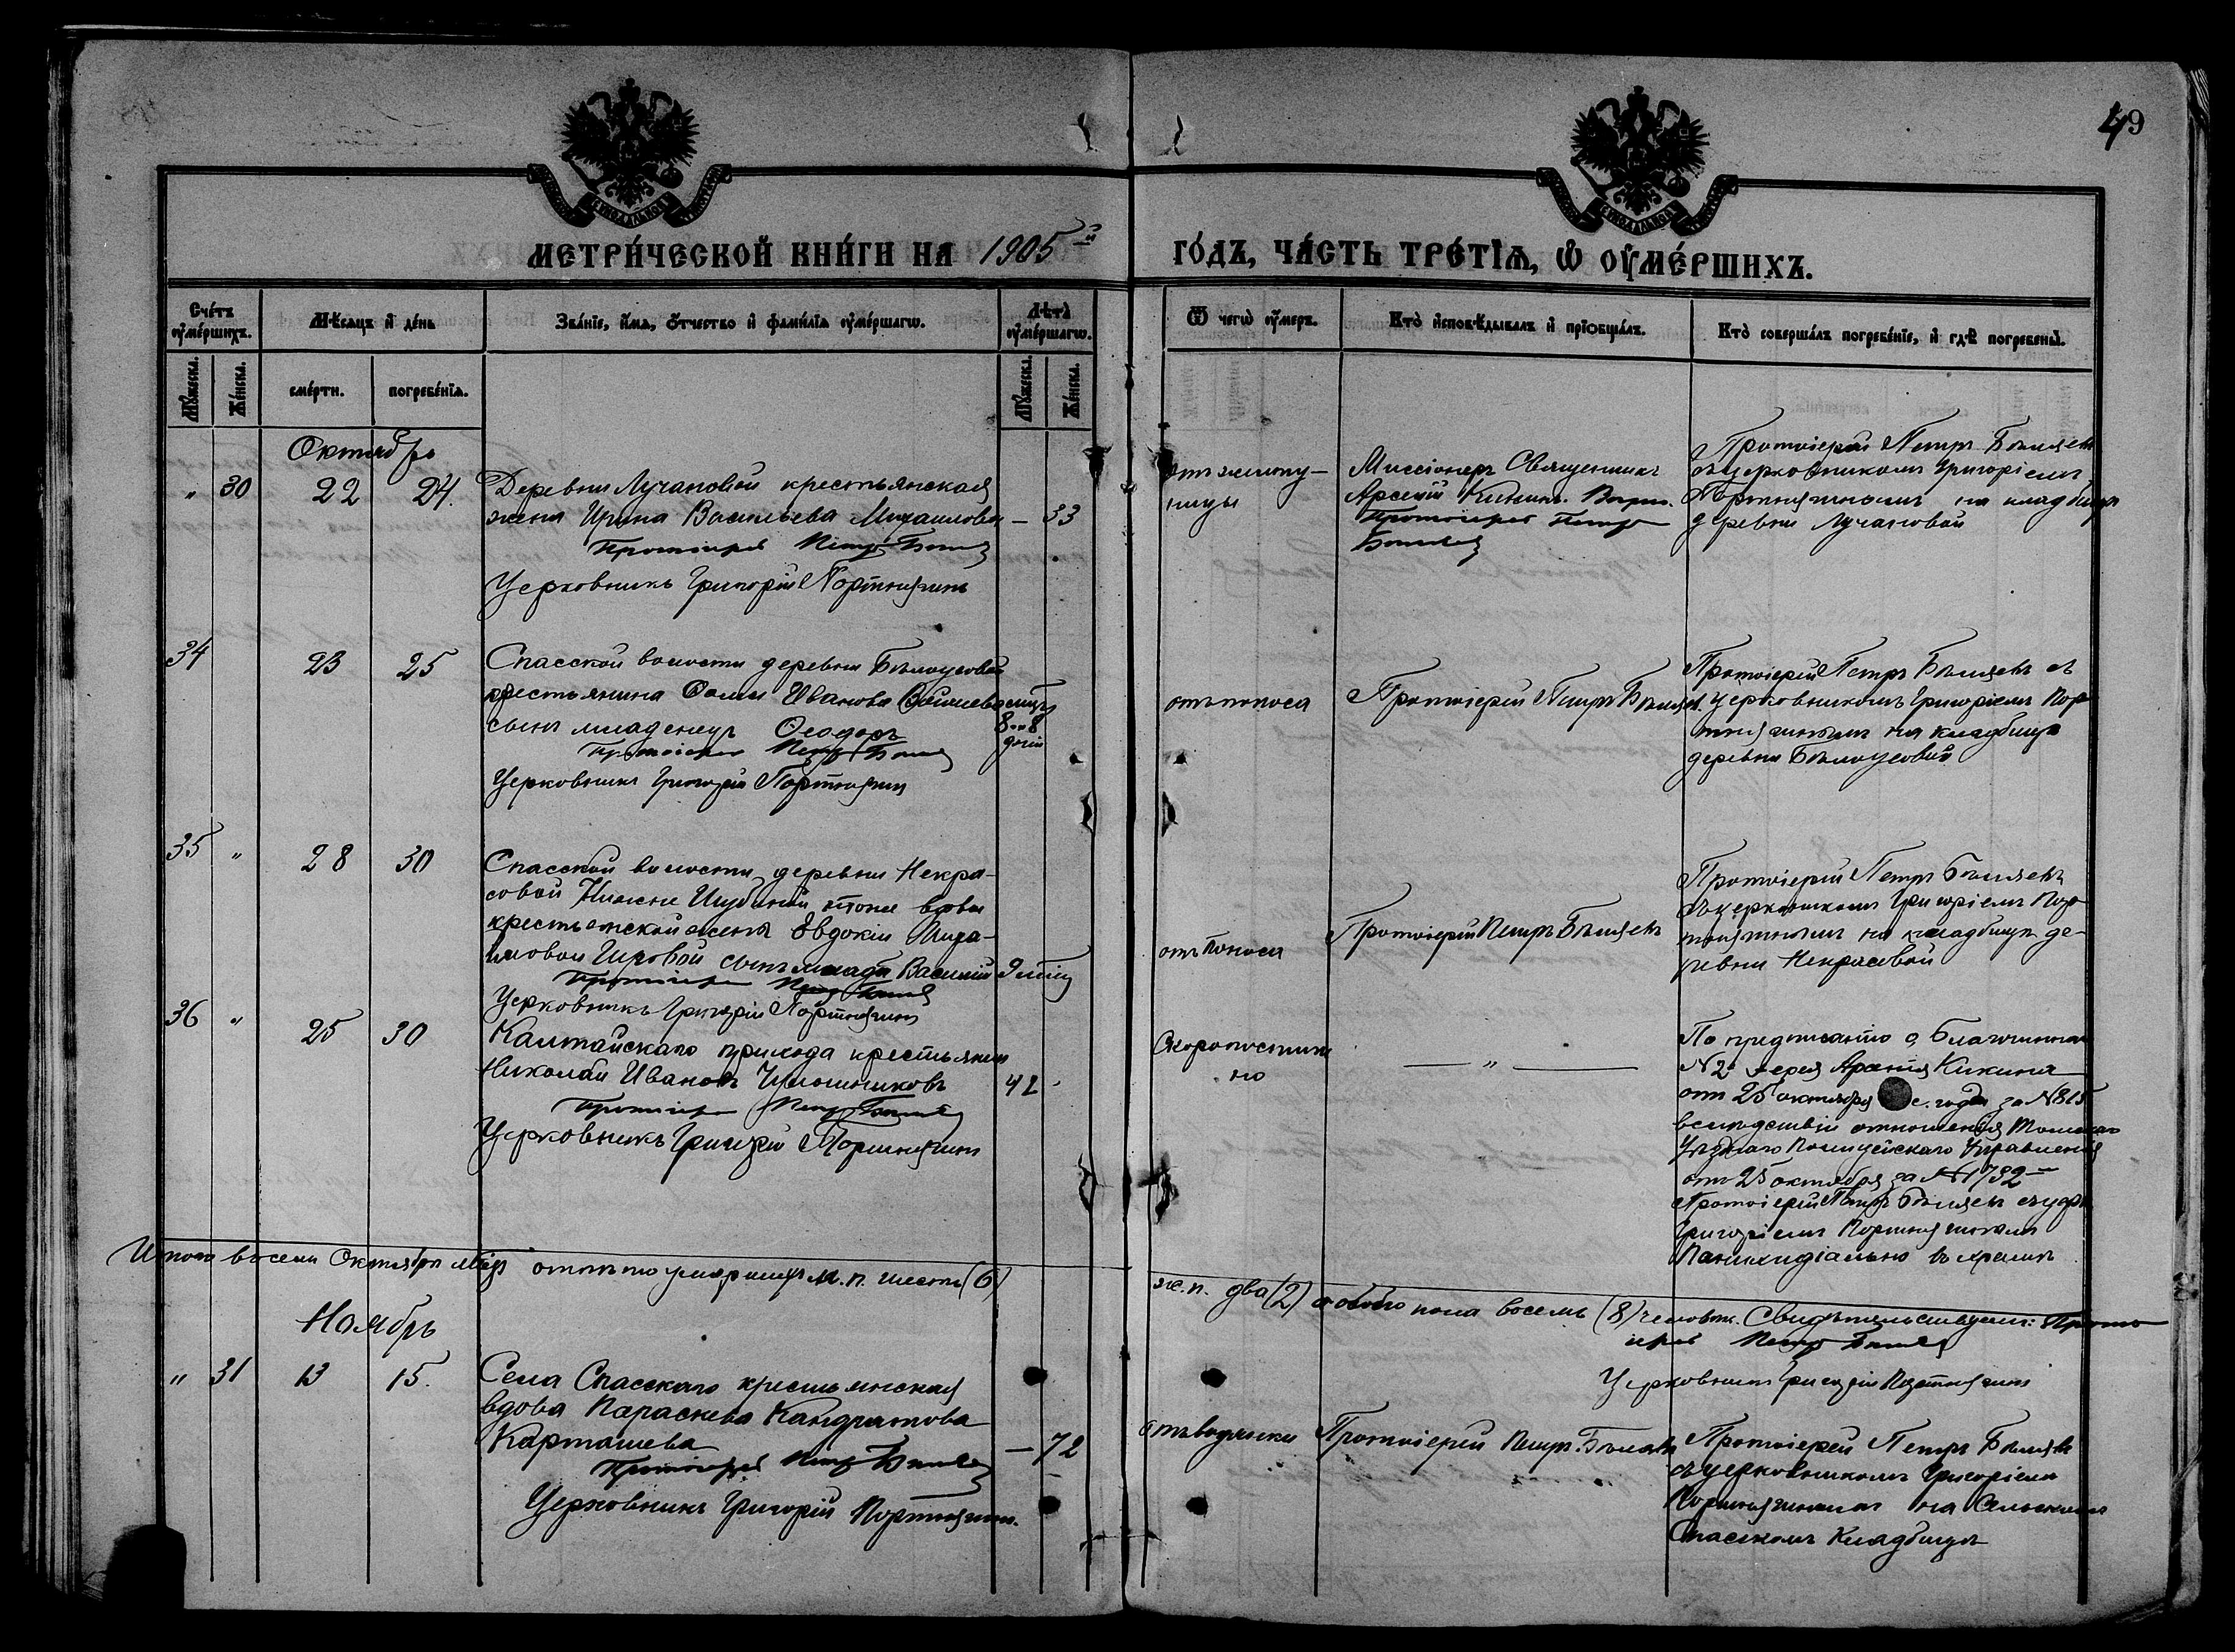 49
МЕТРИ́ЧЕСКОЙ КНИ́ГИ НА 1905й ГО́ДЪ, ЧА́СТЬ ТРЕ́ТІѦ, Ѡ ОУ҆МЕ́РШИХЪ.
Сче́тъ оу҆ме́ршихъ.
Мѣ́сяцъ и де́нь
Зва́нїе, и҆́мѧ, ѻ҆́тчество и фами́лїѧ оу҆ме́ршагѡ.
Лѣта̀ оу҆ме́ршагѡ.
Ѿ чегѡ̀ оу҆́меръ.
Кто̀ и҆сповѣ́дывалъ и прїѡбща́лъ.
Кто̀ соверша́лъ погребе́нїе, и гдѣ̀ погребены̀.
Мꙋжеска.
Же́нска.
сме́рти.
погребе́нїѧ.
Мꙋжеска.
Же́нска.
Октябрь
" 30 22 24.
Деревни Лучановой крестьянская
жена Ирина Васильева Михаилова — 33
Протоіерей Петръ Бѣляевъ
Церковникъ Григорій Портнягинъ
отъ желту-
ницы
Миссіонеръ Священникъ
Арсеній Кикинъ.
Протоіерей Петръ
Бѣляевъ
Протоіерей Петръ Бѣляевъ
съ церковникомъ Григоріемъ
Портнягинымъ на кладбищѣ
деревни Лучановой
34 23 25
Спасской волости деревни Бѣлоусовой
крестьянина Ѳомы Иванова
сынъ младенецъ Ѳеодоръ
8 8
дней
Протоіерей Петръ Бѣляевъ
Церковникъ Григорій Портнягинъ
отъ поноса
Протоіерей Петръ Бѣляевъ
Протоіерей Петръ Бѣляевъ съ
церковникомъ Григоріемъ Пор-
тнягинымъ на кладбищѣ
деревни Бѣлоусовой
35 " 28 30
Спасской волости деревни Некра-
совой
крестьянской жены Евдокіи Миха-
иловой сынъ млад. Василій 9 мѣсяц
Протоіерей Петръ Бѣляевъ
Церковникъ Григорій Портнягинъ
отъ поноса
Протоіерей Петръ Бѣляевъ
Протоіерей Петръ Бѣляевъ
съ церковникомъ Григоріемъ Пор-
тнягинымъ на кладбищѣ де-
ревни Некрасовой
36 " 25 30
Калтайскаго прихода крестьянинъ
Николай Ивановъ 42
Протоіерей Петръ Бѣляевъ
Церковникъ Григорій Портнягинъ
Скоропостиж
но
— " —
По предписанію о. Благочиннаго
№ 2 іерея Арсенія Кикина
отъ 25 октября с. года за № 815
вслѣдствіи отношенія Томскаго
Уѣзднаго Полицейскаго Управленія
отъ 25 октября за № 1732
Протоіерей Петръ Бѣляевъ съ церк.
Григоріемъ Портнягинымъ
въ храмѣ
Итого въ семъ Октябрѣ мѣсяцѣ умершихъ м. п. шесть (6) ж. п. два (2) а обоего пола восемь (8) человѣк. Свидѣтельствуемъ: Прото
іерей Петръ Бѣляевъ
Церковникъ Григорій Портнягинъ
Ноябрь
" 31 13 15.
Села Спасскаго крестьянская
вдова Параскева Кандратова
Карташева — 72
Протоіерей Петръ Бѣляевъ
Церковникъ Григорій Портнягинъ.
отъ водянки
Протоіерей Петръ Бѣляевъ
Протоіерей Петръ Бѣляевъ
съ церковникомъ Григоріемъ
Портнягинымъ на Сельскомъ
Спасскомъ Кладбищѣ